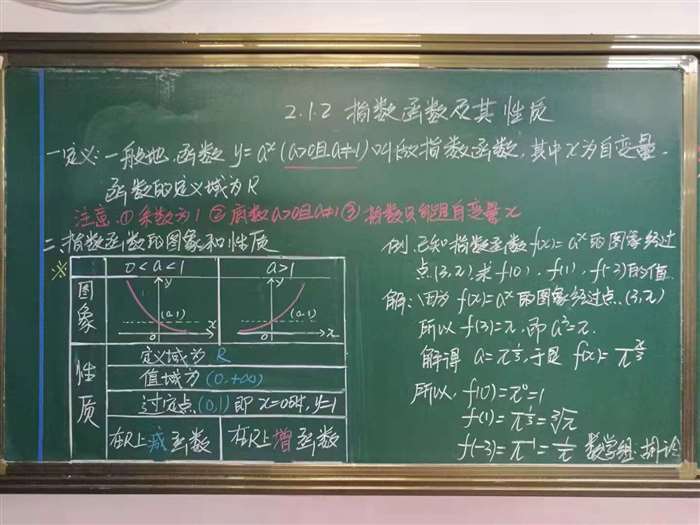 2.1.2 指数函数及其性质
一.定义:一般地,函数 y=aˣ (a>0且a≠1)叫做指数函数,其中x为自变量,
函数的定义域为R
注意:①系数为1 ②底数a>0且a≠1 ③指数只能是自变量x
二.指数函数的图象和性质
※
0<a<1
a>1
图象
y
(0,1)
0
x
y
(0,1)
0
x
性质
定义域为R
值域为(0,+∞)
过定点(0,1)即x=0时,y=1
在R上减函数
在R上增函数
例.已知指数函数f(x)=aˣ的图象经过
点(3,π),求f(0),f(1),f(-3)的值.
解:因为f(x)=aˣ的图象经过点(3,π)
所以f(3)=π,即a³=π.
解得 a=π^{1/3},于是 f(x)=π^{x/3}
所以,f(0)=π⁰=1
f(1)=π^{1/3}=∛π
f(-3)=π⁻¹=1/π
数学组: